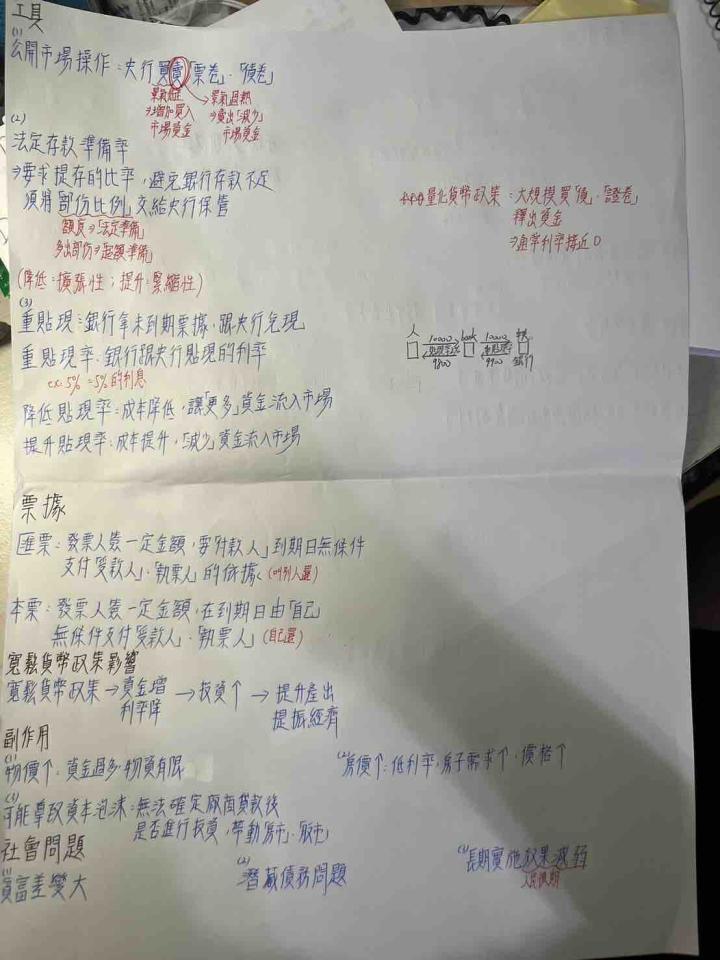 工具
(1)
公開市場操作：央行買賣「票卷」、「債卷」
→景氣過熱
⇒增加買入
市場資金
⇒賣出「減少」
市場資金
(2)
法定存款準備率
⇒要求提存的比率，避免銀行存款不足
須將「部份比例」交給央行保管
⇒「法定準備」
多出部份⇒「超額準備」
(降低：擴張性；提升：緊縮性)
量化貨幣政策：大規模買「債」、「證卷」
釋出資金
⇒通常利率接近0
(3)
重貼現：銀行拿未到期票據，跟央行兌現
重貼現率：銀行跟央行貼現的利率
ex: 5% = 5%的利息
人 10000 bank 10000
9800 9900 銀行
降低貼現率：成本降低，讓「更多」資金流入市場
提升貼現率：成本提升，「減少」資金流入市場
票據
匯票：發票人簽一定金額，要「付款人」到期日無條件
支付「受款人」、「執票人」的依據 (叫別人還)
本票：發票人簽一定金額，在到期日由「自己」
無條件支付「受款人」、「執票人」 (自己還)
寬鬆貨幣政策影響
寬鬆貨幣政策→資金增 →投資↑ →提升產出
利率降 提振經濟
副作用
(1) 物價↑：資金過多，物資有限
(2) 房價↑：低利率，房子需求↑，價格↑
可能導致資本泡沫：無法確定廠商貸款後
是否進行投資，帶動「房市」、「股市」
社會問題
(1) 貧富差變大
(2) 潛藏債務問題
(3) 長期實施效果減弱